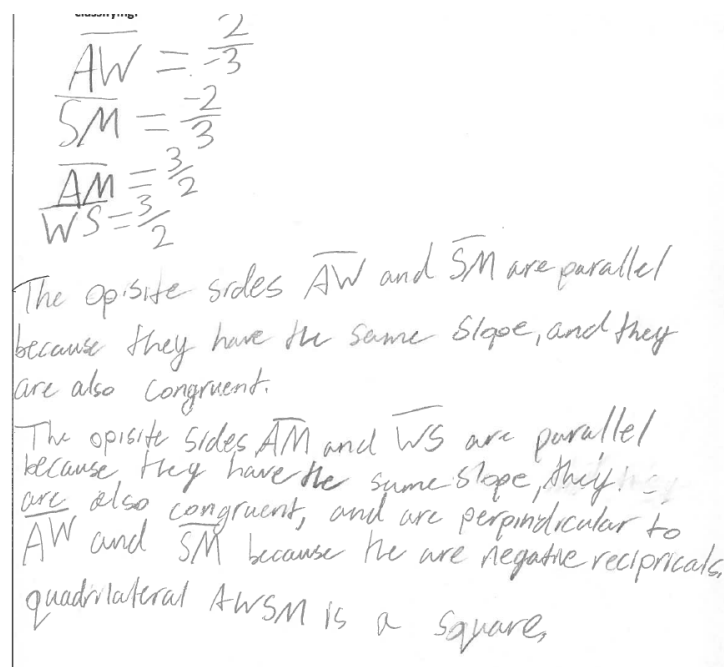 Classifying:
AW = 2/-3
SM = -2/3
AM = 3/2
WS = 3/2
The opisite sides AW and SM are parallel
because they have the same slope, and they
are also congruent.
The opisite sides AM and WS are parallel
because they have the same slope, they
are also congruent, and are perpindicular to
AW and SM because the are negative recipricals.
quadrilateral AWSM is a square.